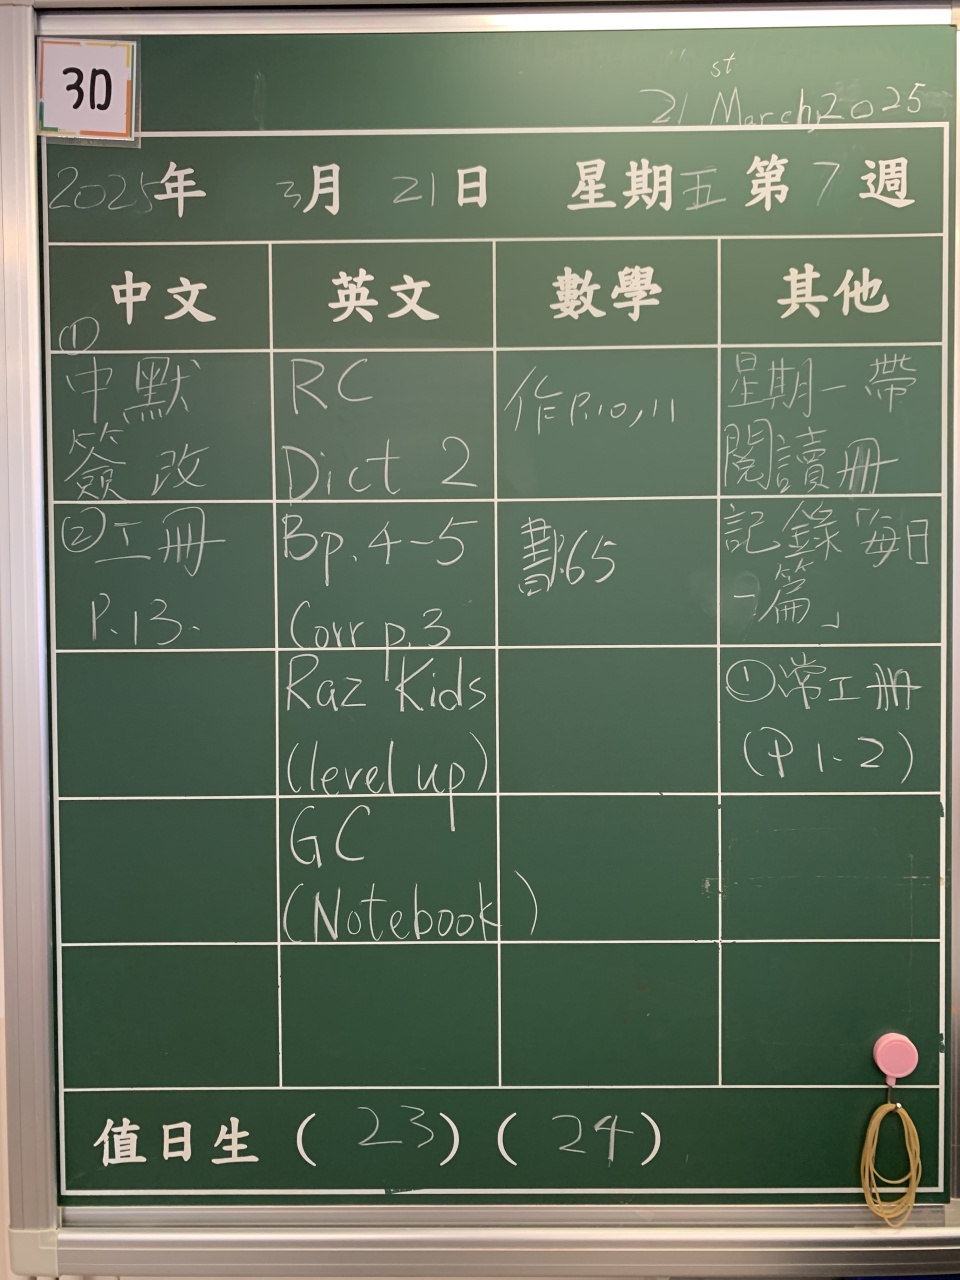 3D
21st March, 2025
2025年 3月 21日 星期五 第 7 週
中文 英文 數學 其他
①
中默
簽改
②工冊
P.13.
RC
Dict 2
Bp. 4-5
Corr p.3
Raz Kids
(level up)
GC
(Notebook)
作P.10,11
書65
星期一帶
閱讀冊
記錄「每日
一篇」
①常工冊
(P 1-2)
值日生 ( 23 ) ( 24 )